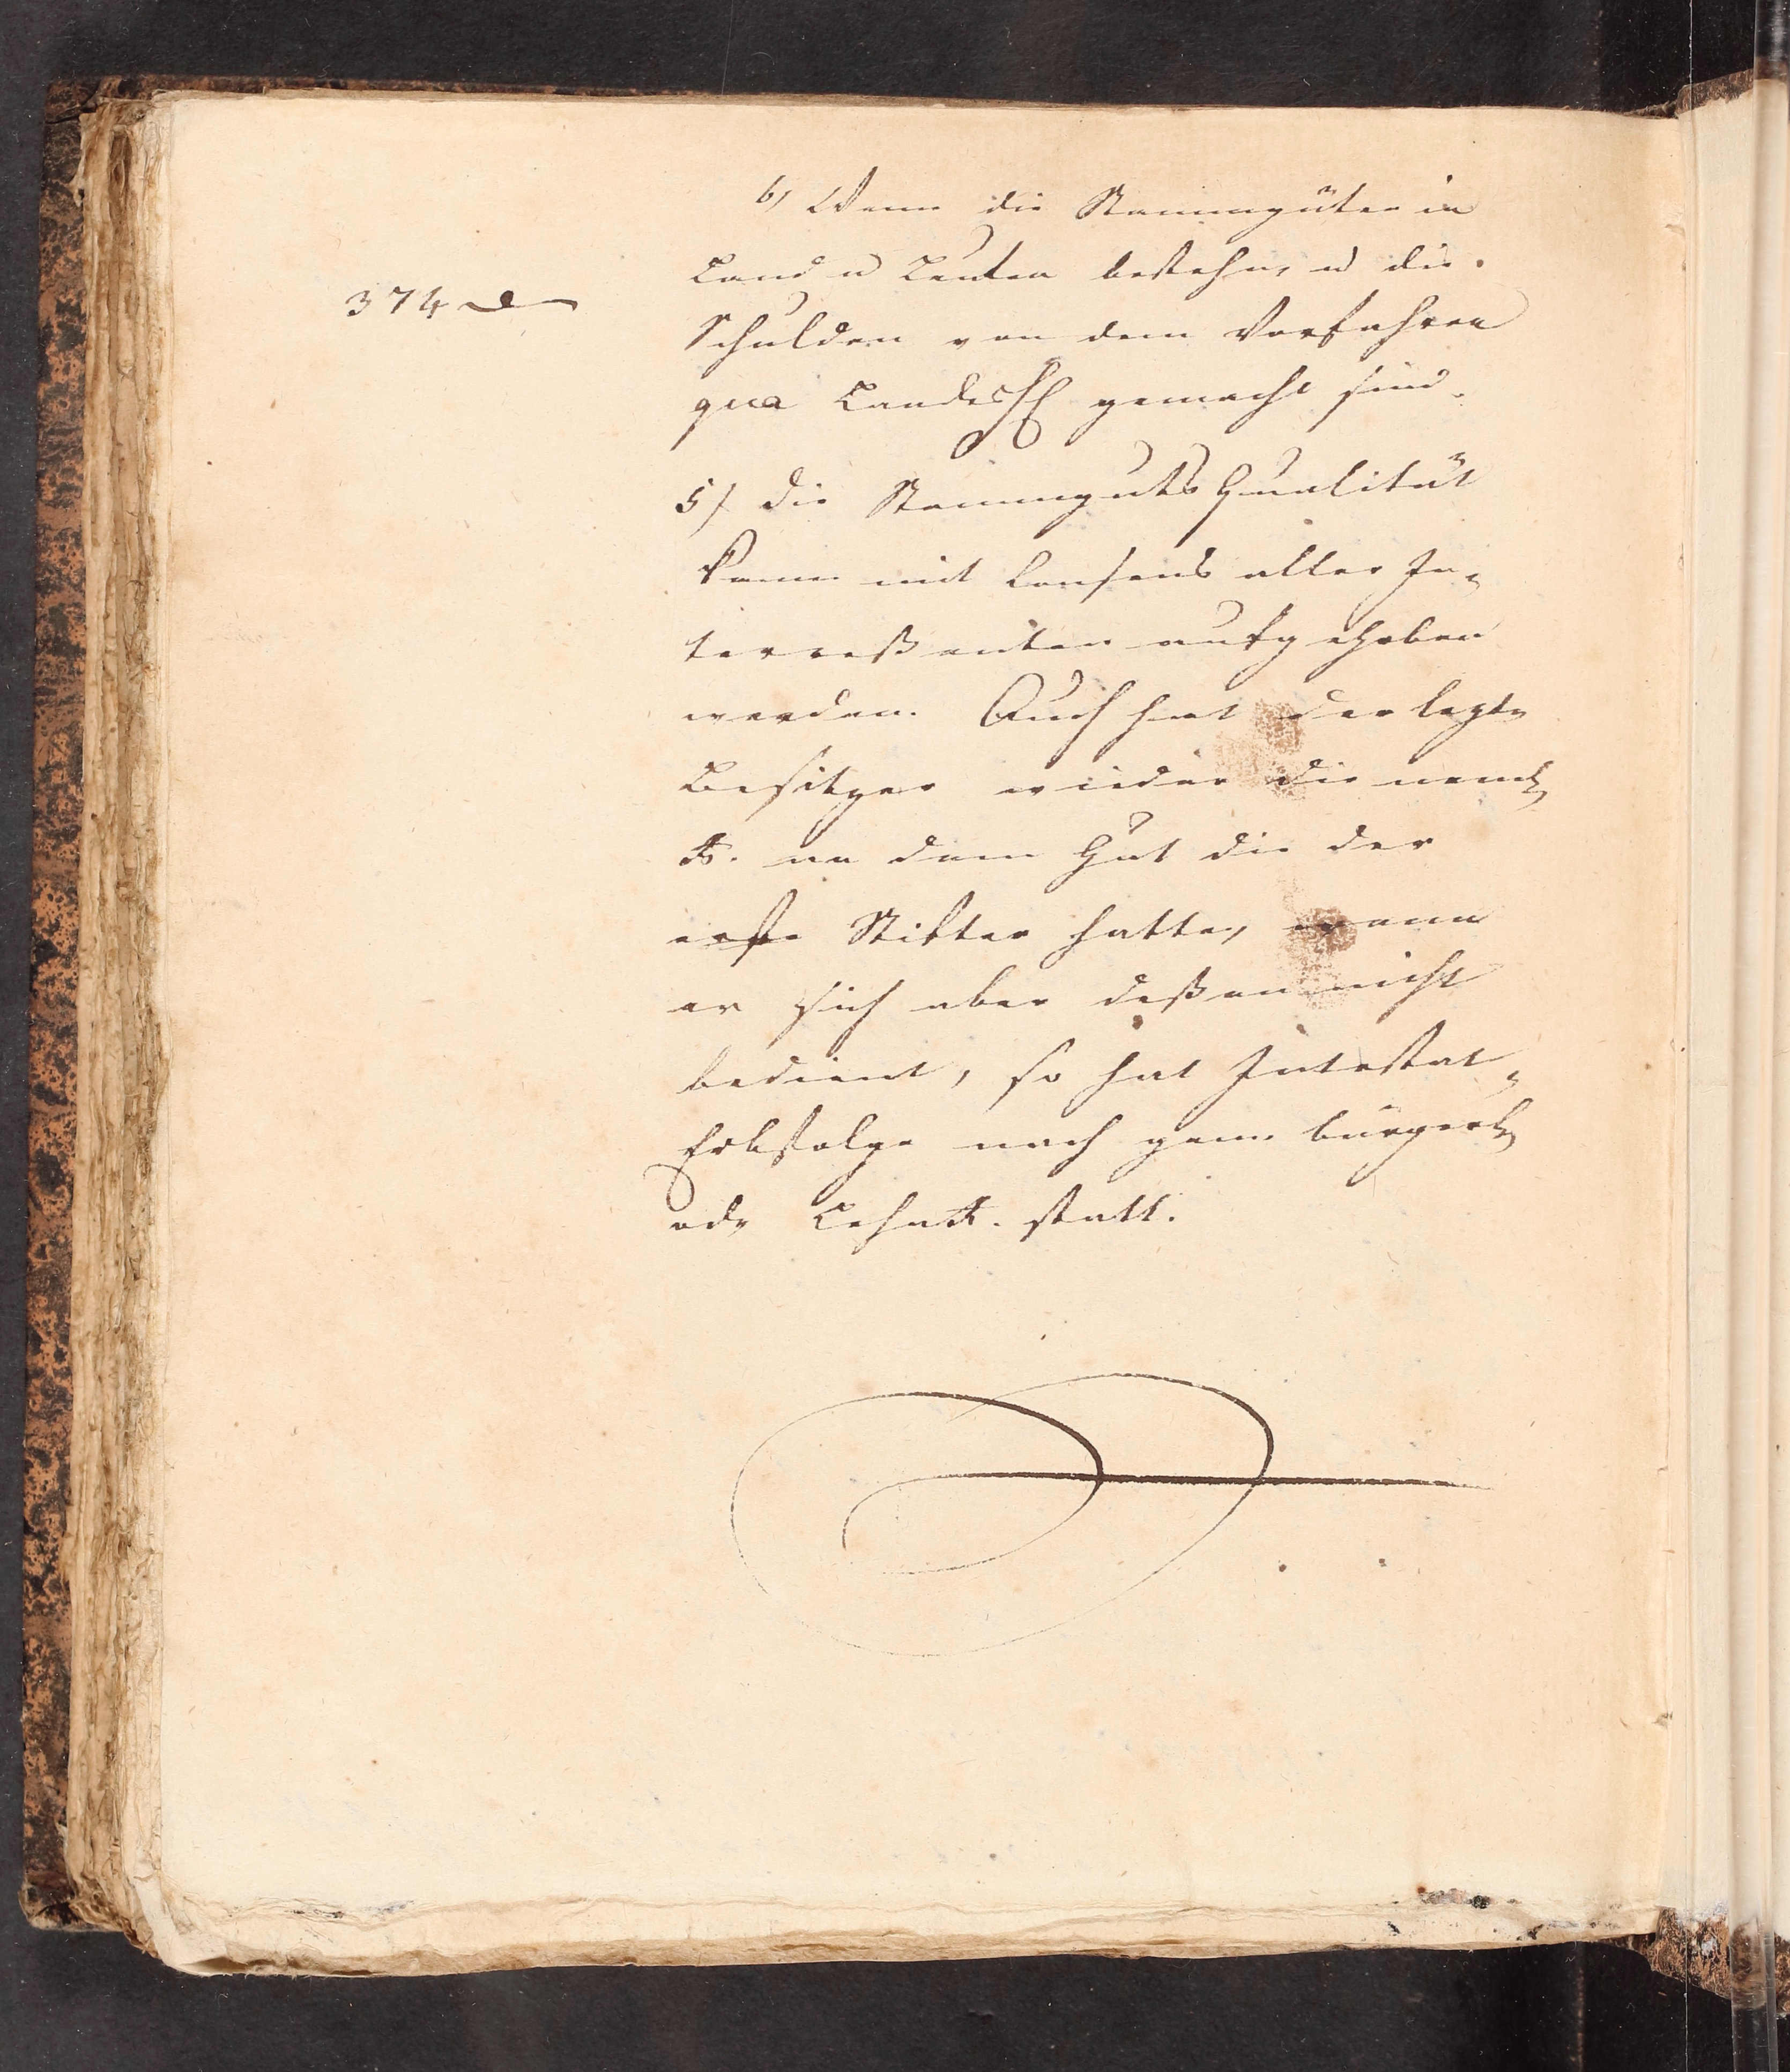 b) Wenn die Stammgüter in
Land u Leuten bestehn, u die
374
Schulden von dem Vorfahren
qua Landes gemacht sind.
5) die Stammguts Qualität
kann mit Consens aller In-
teressanten aufgehoben
werden. Auch hat der lezte
Besitzer wieder die neml.
R. an dem Gut die der
erste Stifter hatte, wenn
er sich aber deßen nicht
bedient, so hat Intestat-
Erbfolge nach gem. bürgerl.
od. LehnR. statt.